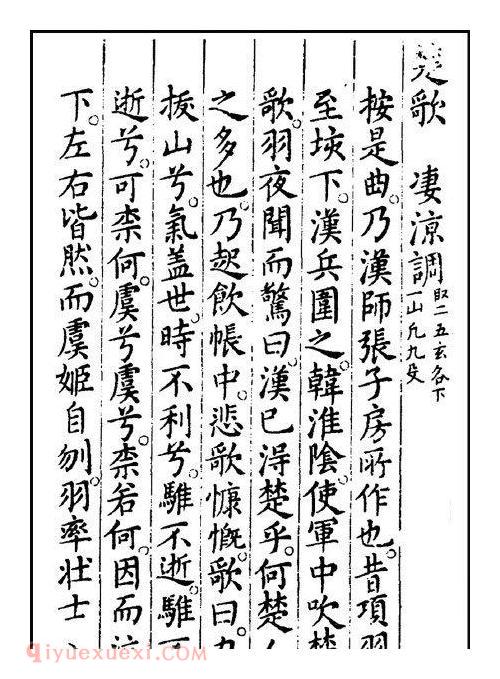 楚歌　凄涼調 取二五玄各下
一山凡九殳
按是曲。乃漢師張子房所作也。昔項羽
至垓下。漢兵圍之。韓淮陰。使軍中吹楚
歌。羽夜聞而驚曰。漢已得楚乎。何楚
之多也。乃起飲帳中。悲歌慷慨。歌曰。
拔山兮。氣盖世。時不利兮。騅不逝。騅
逝兮。可柰何。虞兮虞兮。柰若何。因而泣
下。左右皆然。而虞姬自刎。羽率壯士
qiyuexuexi.com